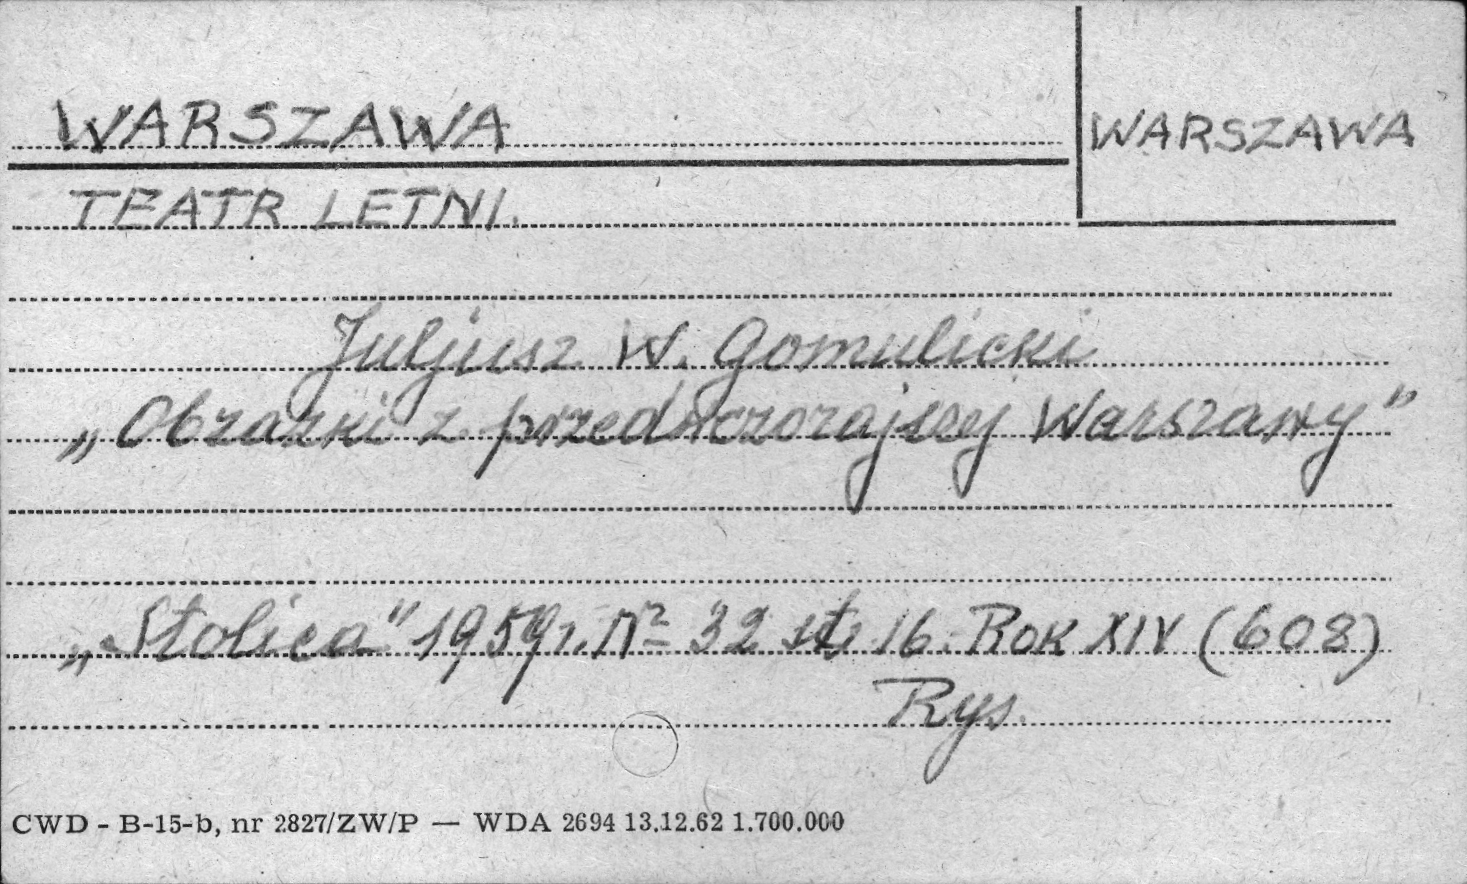 WARSZAWA
WARSZAWA
TEATR LETNI.
Juljusz W. Gomulicki
„Obrazki z przedwczorajszej Warszawy"
„Stolica" 1959 r. Nº 32 str 16. Rok XIV (608)
Rys.
CWD - B-15-b, nr 2827/ZW/P — WDA 2694 13.12.62 1.700.000